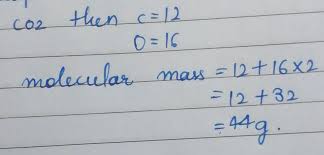 CO2 then C=12
O=16
molecular mass = 12+16×2
= 12+32
= 44g.